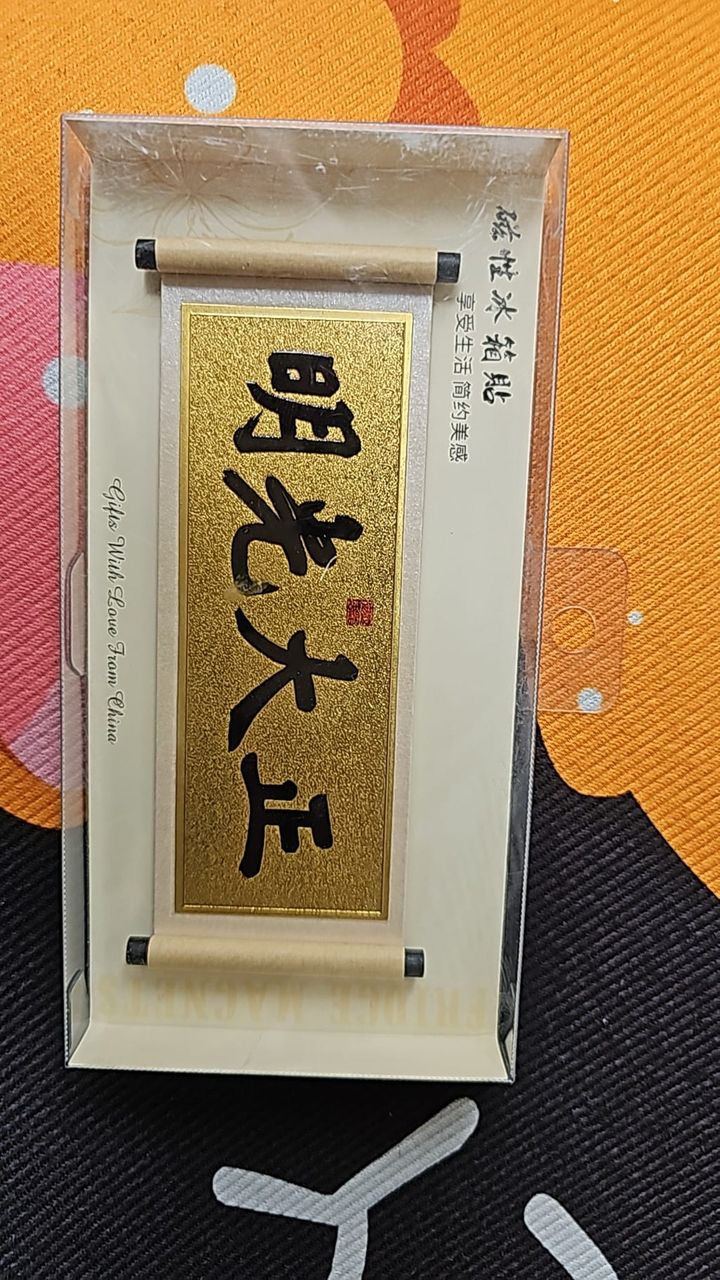 磁性冰箱貼
享受生活 简约美感
明光大正
Gifts With Love From China
FRIDGE MAGNETS